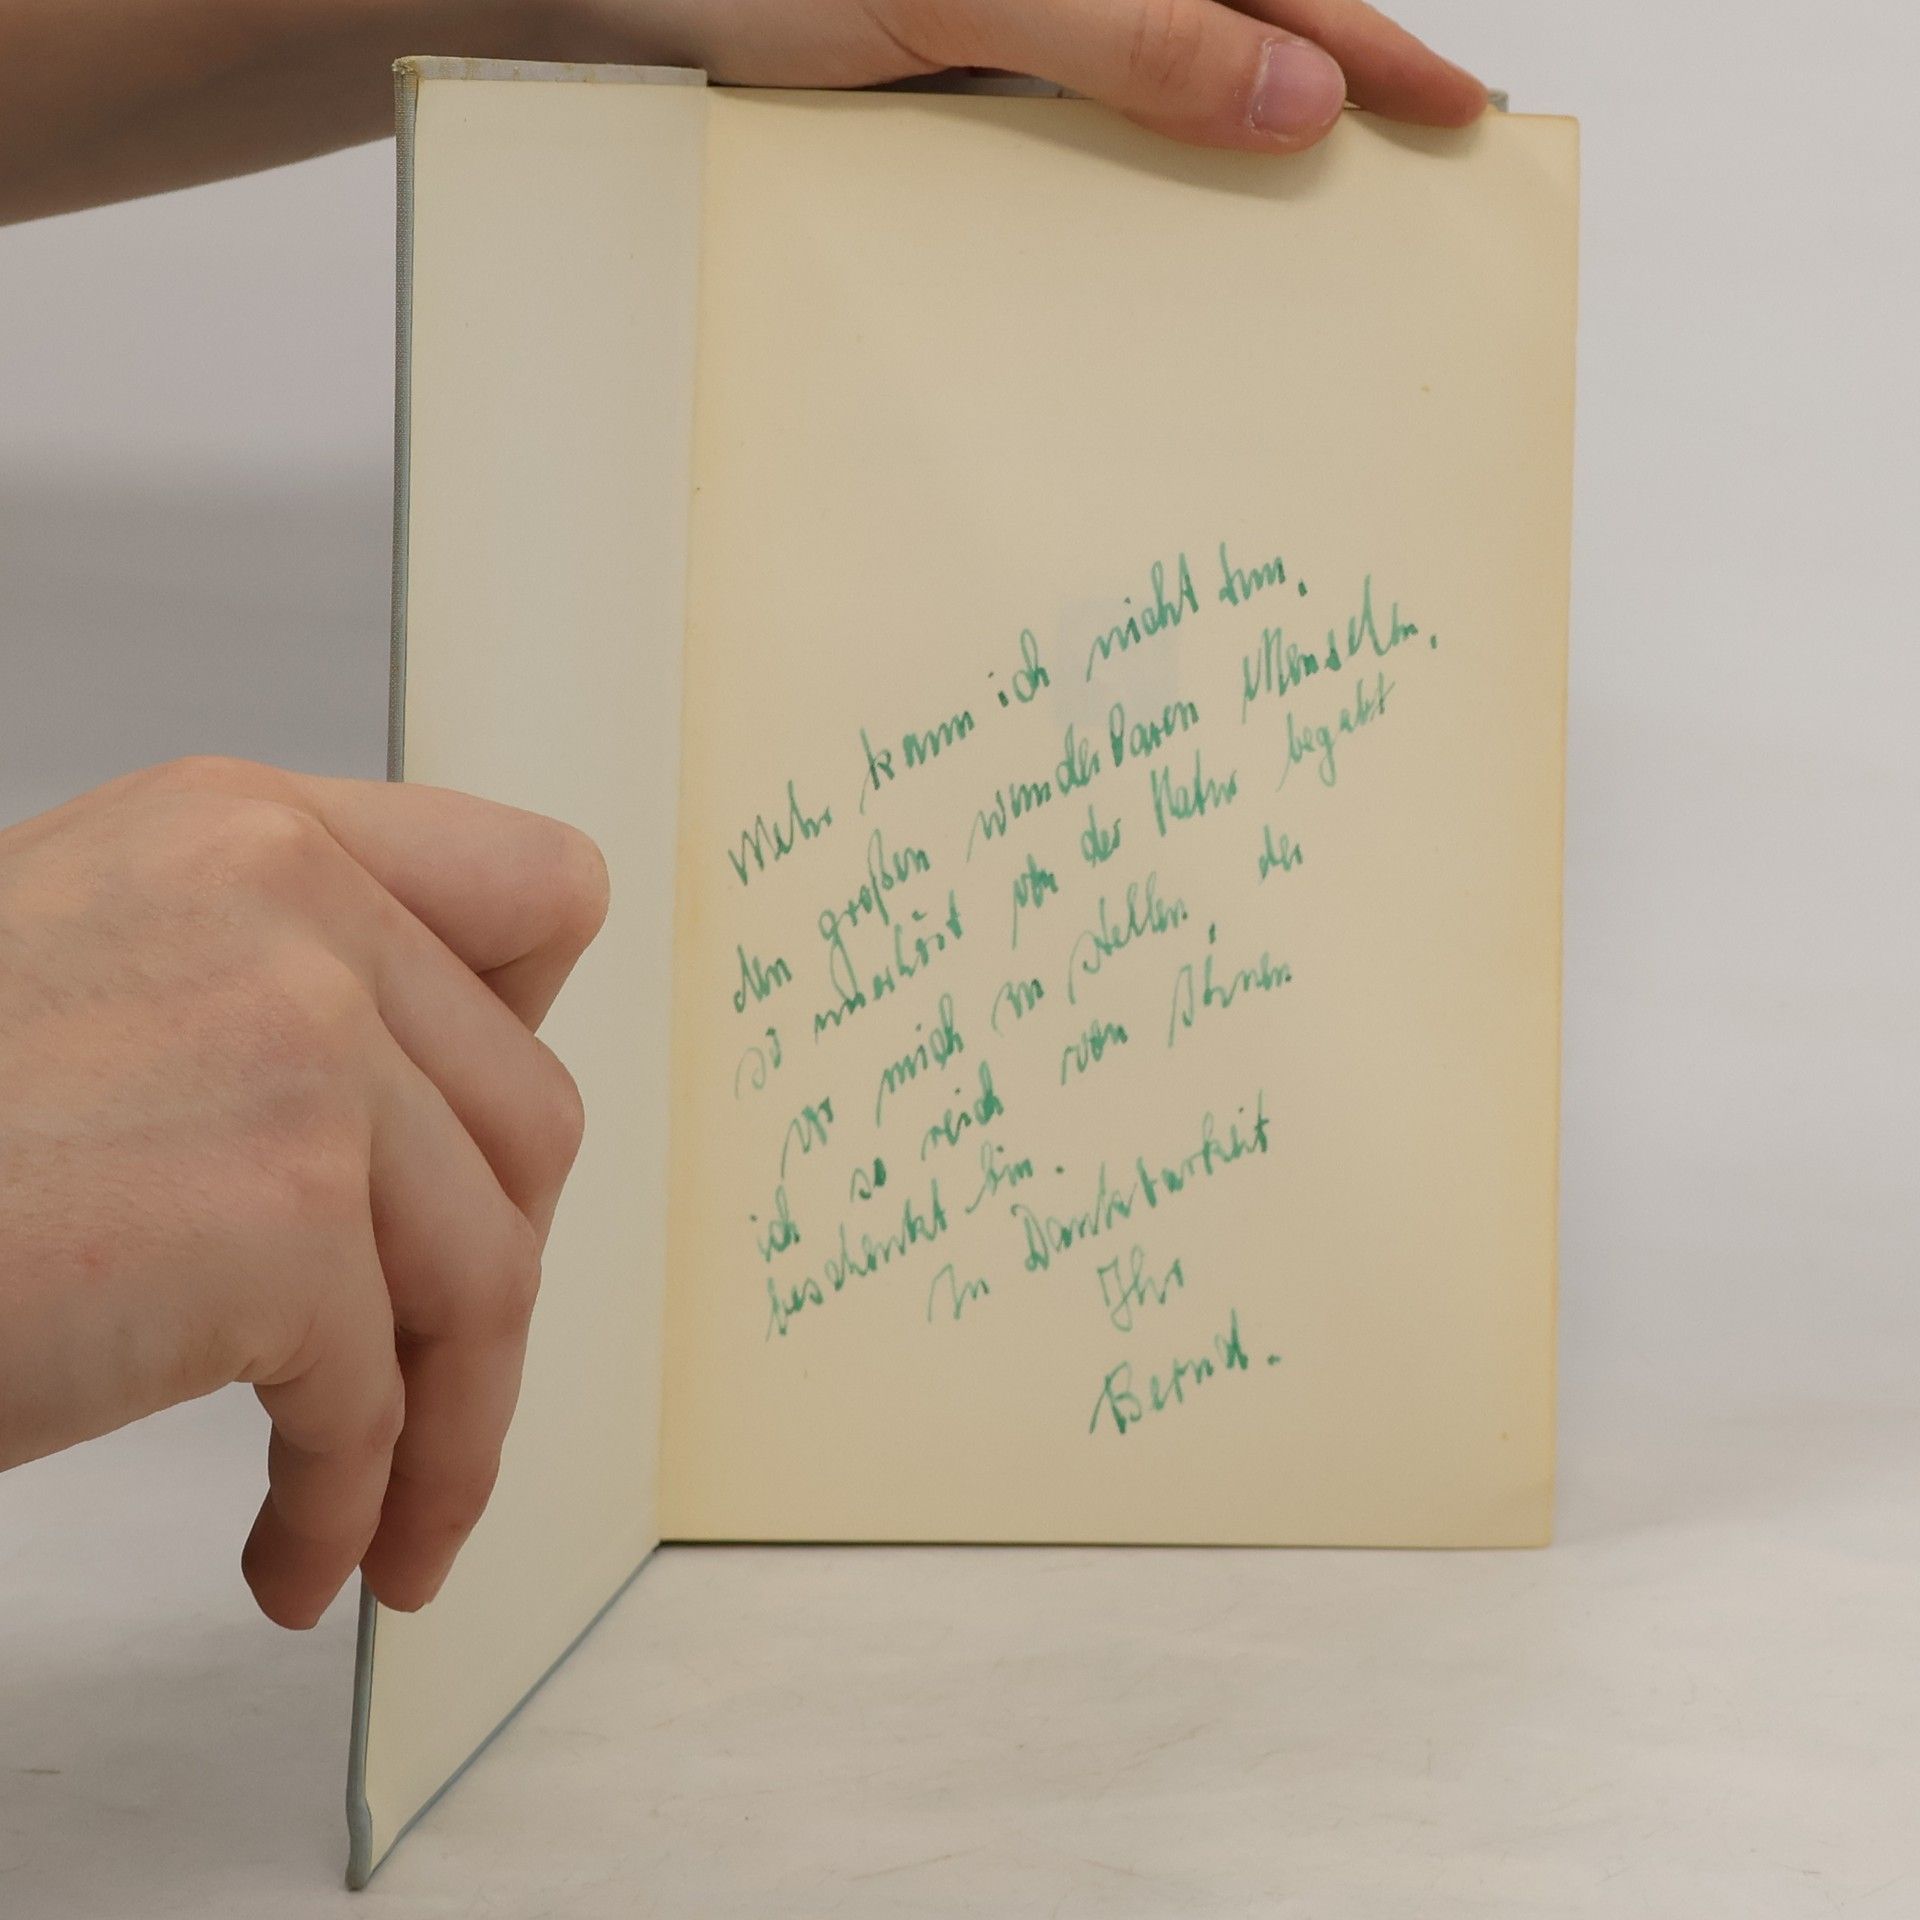 Mehr kann ich nicht tun.
den großen wunderbaren Menschen,
so unerhört von der Natur begabt
vor mich zu stellen, der
ich so reich von Ihnen
beschenkt bin.
In Dankbarkeit
Ihr
Bernd.